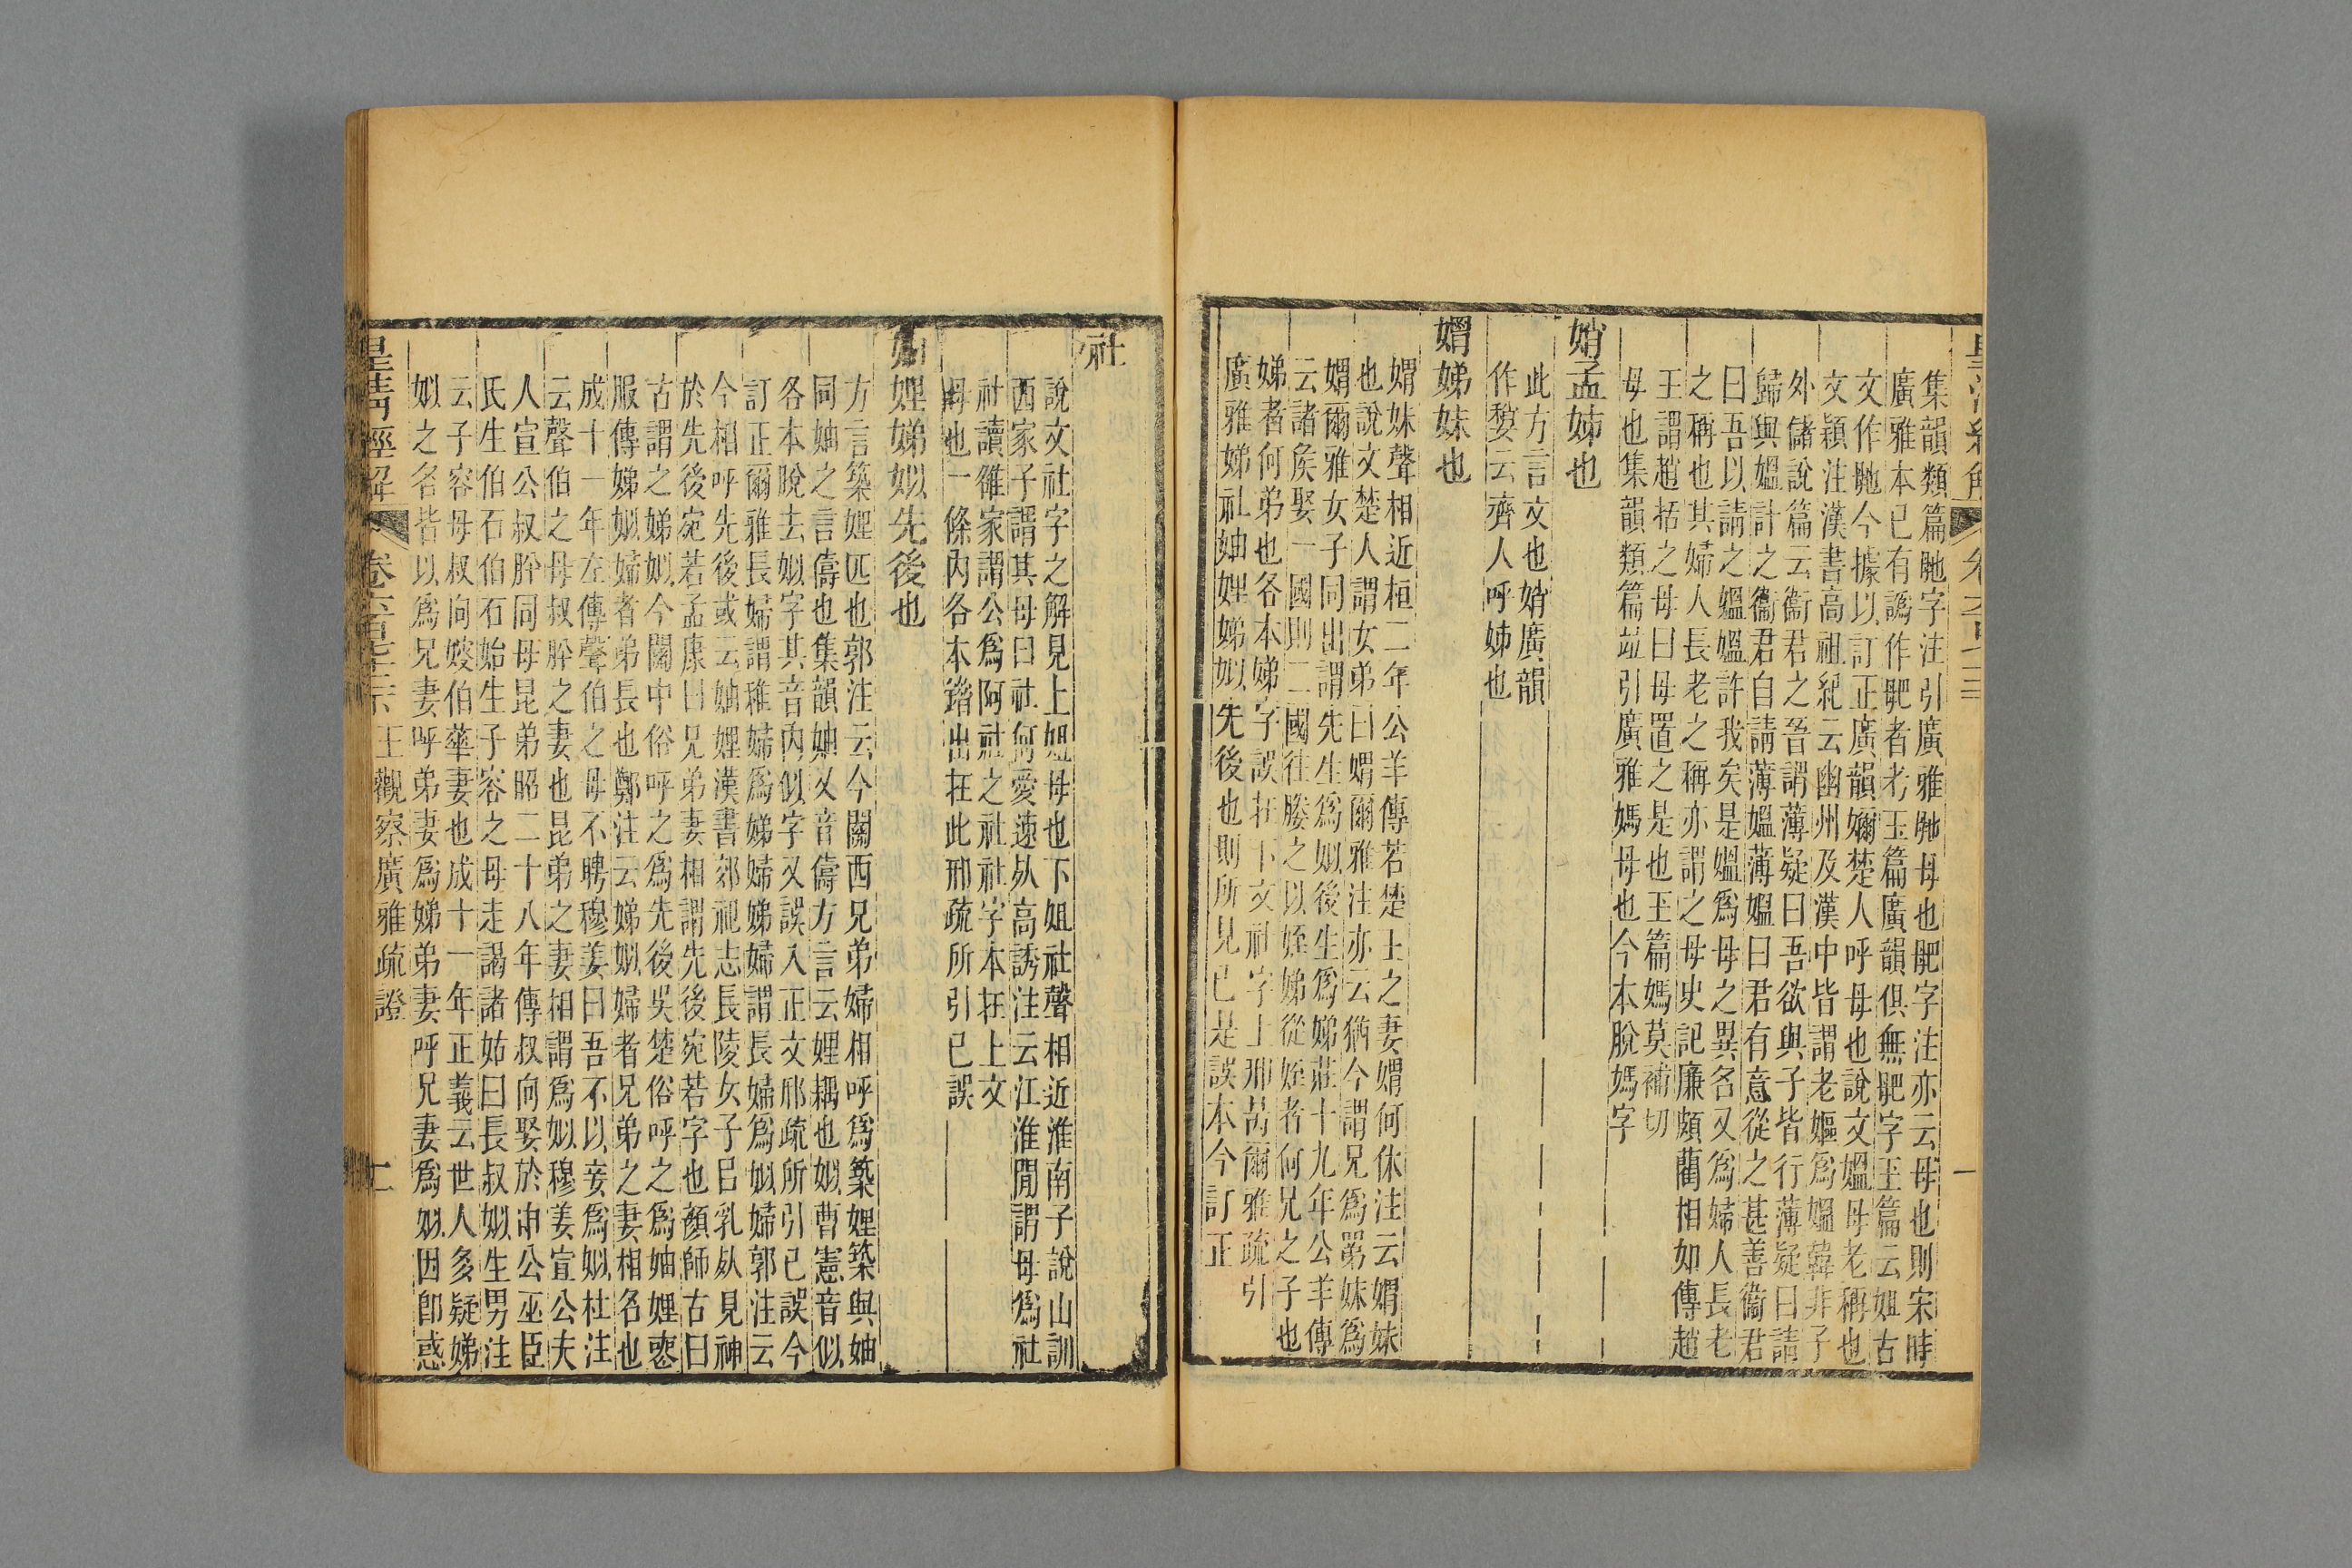 集韻類篇馳字注引廣雅毑母也肶字注亦云母也則宋時
廣雅本已有譌作肶者考玉篇廣韻俱無肶字玉篇云姐古
文作毑今據以訂正廣韻嬭楚人呼母也說文媼母老稱也
文穎注漢書高祖紀云幽州及漢中皆謂老嫗爲媼韓非子
外儲說篇云衞君之吾謂薄疑曰吾欲與子皆行薄疑曰請
歸與媼計之衞君自請薄媼薄媼曰君有意從之甚善衞君
曰吾以請之媼媼許我矣是媼爲母之異名又爲婦人長老
之稱也其婦人長老之稱亦謂之母史記廉頗藺相如傳趙
王謂趙括之母曰母置之是也玉篇媽莫補切
母也集韻類篇竝引廣雅媽母也今本脫媽字
媌孟姊也
此方言文也媌廣韻
作㛮云齊人呼姊也
媦娣妹也
媦妹聲相近桓二年公羊傳若楚王之妻媦何休注云媦妹
也說文楚人謂女弟曰媦爾雅注亦云猶今謂兄爲䍲妹爲
媦爾雅女子同出謂先生爲姒後生爲娣莊十九年公羊傳
云諸矦娶一國則二國往媵之以姪娣從姪者何兄之子也
娣者何弟也各本娣字誤在下文社字上邢昺爾雅疏引
廣雅娣社妯娌娣姒先後也則所見已是誤本今訂正
社
說文社字之解見上姐母也下姐社聲相近淮南子說山訓
西家子謂其母曰社何愛速死高誘注云江淮閒謂母爲社
社讀雒家謂公爲阿社之社社字本在上文
母也一條內各本錯出在此邢疏所引已誤
妯娌娣姒先後也
方言築娌匹也郭注云今關西兄弟婦相呼爲築娌築與妯
同妯之言儔也集韻妯又音儔方言云娌耦也姒曹憲音似
各本脫去姒字其音內似字又誤入正文邢疏所引已誤今
訂正爾雅長婦謂稚婦爲娣婦娣婦謂長婦爲姒婦郭注云
今相呼先後或云妯娌漢書郊祀志長陵女子巳乳死見神
於先後宛若孟康曰兄弟妻相謂先後宛若字也顏師古曰
古謂之娣姒今關中俗呼之爲先後吳楚俗呼之爲妯娌䘮
服傳娣姒婦者弟長也鄭注云娣姒婦者兄弟之妻相名也
成十一年左傳聲伯之母不聘穆姜曰吾不以妾爲姒杜注
云聲伯之母叔肸之妻也昆弟之妻相謂爲姒穆姜宣公夫
人宣公叔肸同母昆弟昭二十八年傳叔向娶於申公巫臣
氏生伯石伯石始生子容之母走謁諸姑曰長叔姒生男注
云子容母叔向嫂伯華妻也成十一年正義云世人多疑娣
姒之名皆以爲兄妻呼弟妻爲娣弟妻呼兄妻爲姒因卽惑
皇清經解 王觀察廣雅疏證 二